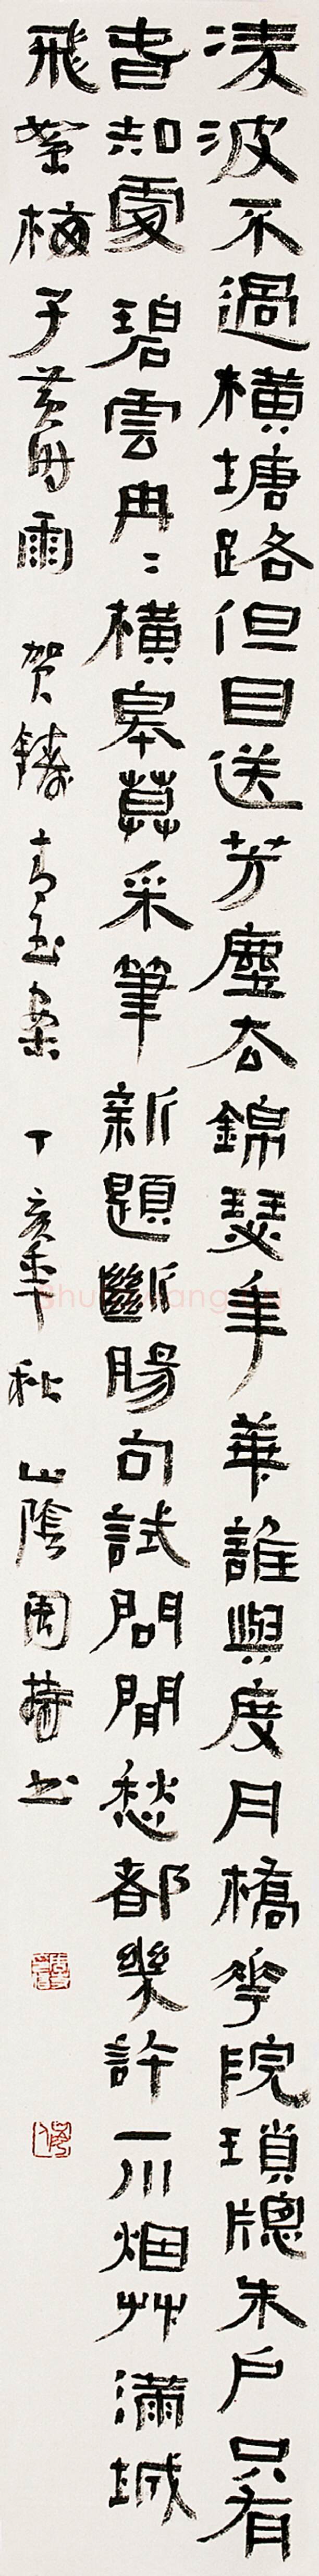 淩波不過橫塘路但目送芳塵去錦瑟年華誰與度月橋花院瑣牕朱戶只有
春知處碧雲冉〻橫皋莫采筆新題斷腸句試問閒愁都幾許一川烟艸滿城
飛絮梅子黃時雨 賀鑄青玉案 丁亥年秋 山陰周書